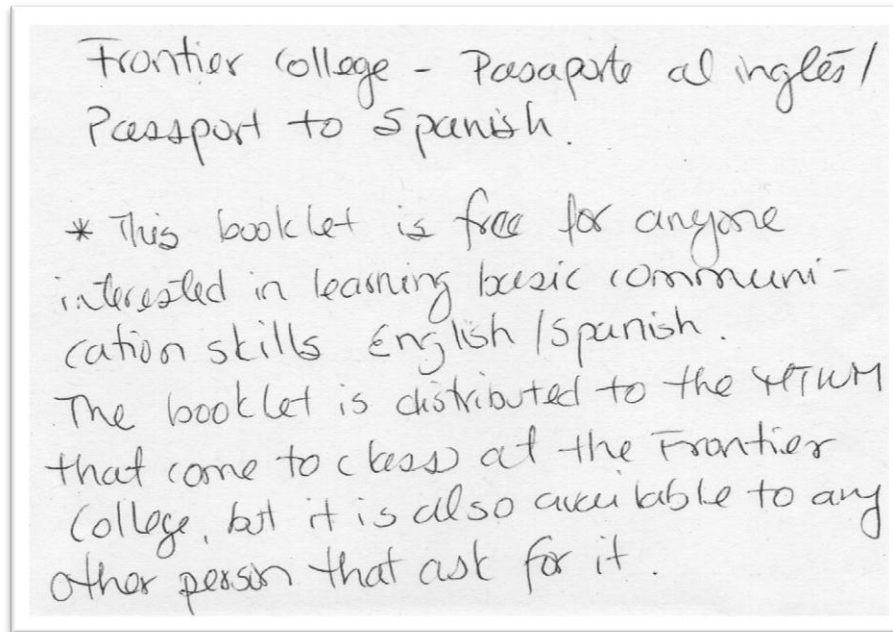 Frontier College - Pasaporte al inglés /
Passport to Spanish.
* This booklet is free for anyone
interested in learning basic communi-
cation skills English / Spanish.
The booklet is distributed to the
that come to class at the Frontier
College, but it is also available to any
other person that ask for it.